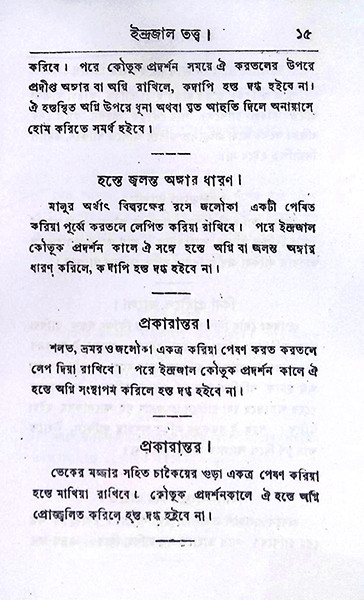 ইন্দ্রজাল তত্ত্ব। ১৫
করিবে। পরে কৌতুক প্রদর্শন সময়ে ঐ করতলের উপরে
প্রদীপ্ত অঙ্গার বা অগ্নি রাখিলে, কদাপি হস্ত দগ্ধ হইবে না।
ঐ হস্তস্থিত অগ্নি উপরে ধূনা অথবা ঘৃত আহুতি দিলে অনায়াসে
হোম করিতে সমর্থ হইবে।
হস্তে জ্বলন্ত অঙ্গার ধারণ।
মালুর অর্থাৎ বিল্ববৃক্ষের রসে জলৌকা একটী পেষিত
করিয়া পূর্ব্বে করতলে লেপিত করিয়া রাখিবে। পরে ইন্দ্রজাল
কৌতুক প্রদর্শন কালে ঐ সঙ্গে হস্তে অগ্নি বা জলন্ত অঙ্গার
ধারণ করিলে, কদাপি হস্ত দগ্ধ হইবে না।
প্রকারান্তর।
শলভ, ভ্রমর ও জলৌকা একত্র করিয়া পেষণ করত করতলে
লেপ দিয়া রাখিবে। পরে ইন্দ্রজাল কৌতুক প্রদর্শন কালে ঐ
হস্তে অগ্নি সংস্থাপন করিলে হস্ত দগ্ধ হইবে না।
প্রকারান্তর।
ভেকের মজ্জার সহিত চাকৈয়ের গুড়া একত্র পেষণ করিয়া
হস্তে মাখিয়া রাখিবে। কৌতুক প্রদর্শনকালে ঐ হস্তে অগ্নি
প্রোজ্জ্বলিত করিলে হস্ত দগ্ধ হইবে না।